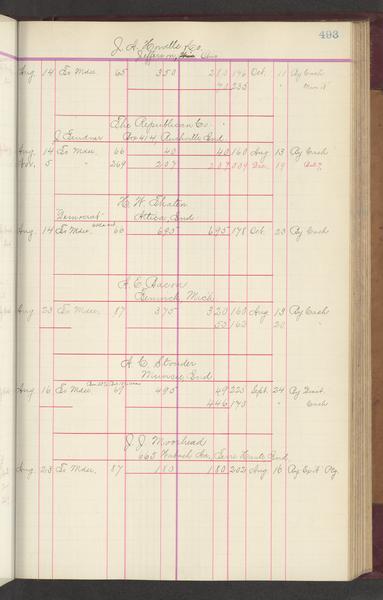 493
J. A. Howells & Co.
Jefferson, Ohio
Aug 14 To Mdse. 65 350 280 196 Oct. 11 By Cash
70 235 "
The Republican Co.
J. Box 414, Ind
Aug 14 To Mdse 66 40 40 160 Aug 13 By Cash
Nov. 5 " 269 207 207 009 Dec. 19
H. W.
"Democrat" Attica, Ind
Aug. 14 To Mdse. 66 695 695 178 Oct 23 By Cash
A. E. Bacon
Mich
Aug. 23 To Mdse. 87 375 320 160 Aug 13 By Cash
55 162 20 "
A. C. Stouder
Muncie, Ind
Aug. 16 To Mdse. 69 495 49 225 Sept. 24 By Disct.
446 173 " Cash
J. J. Moorhead
663 Wabash Ave, Terre Haute Ind.
Aug. 23 To Mdse. 87 180 180 202 Aug 16 By Exp.